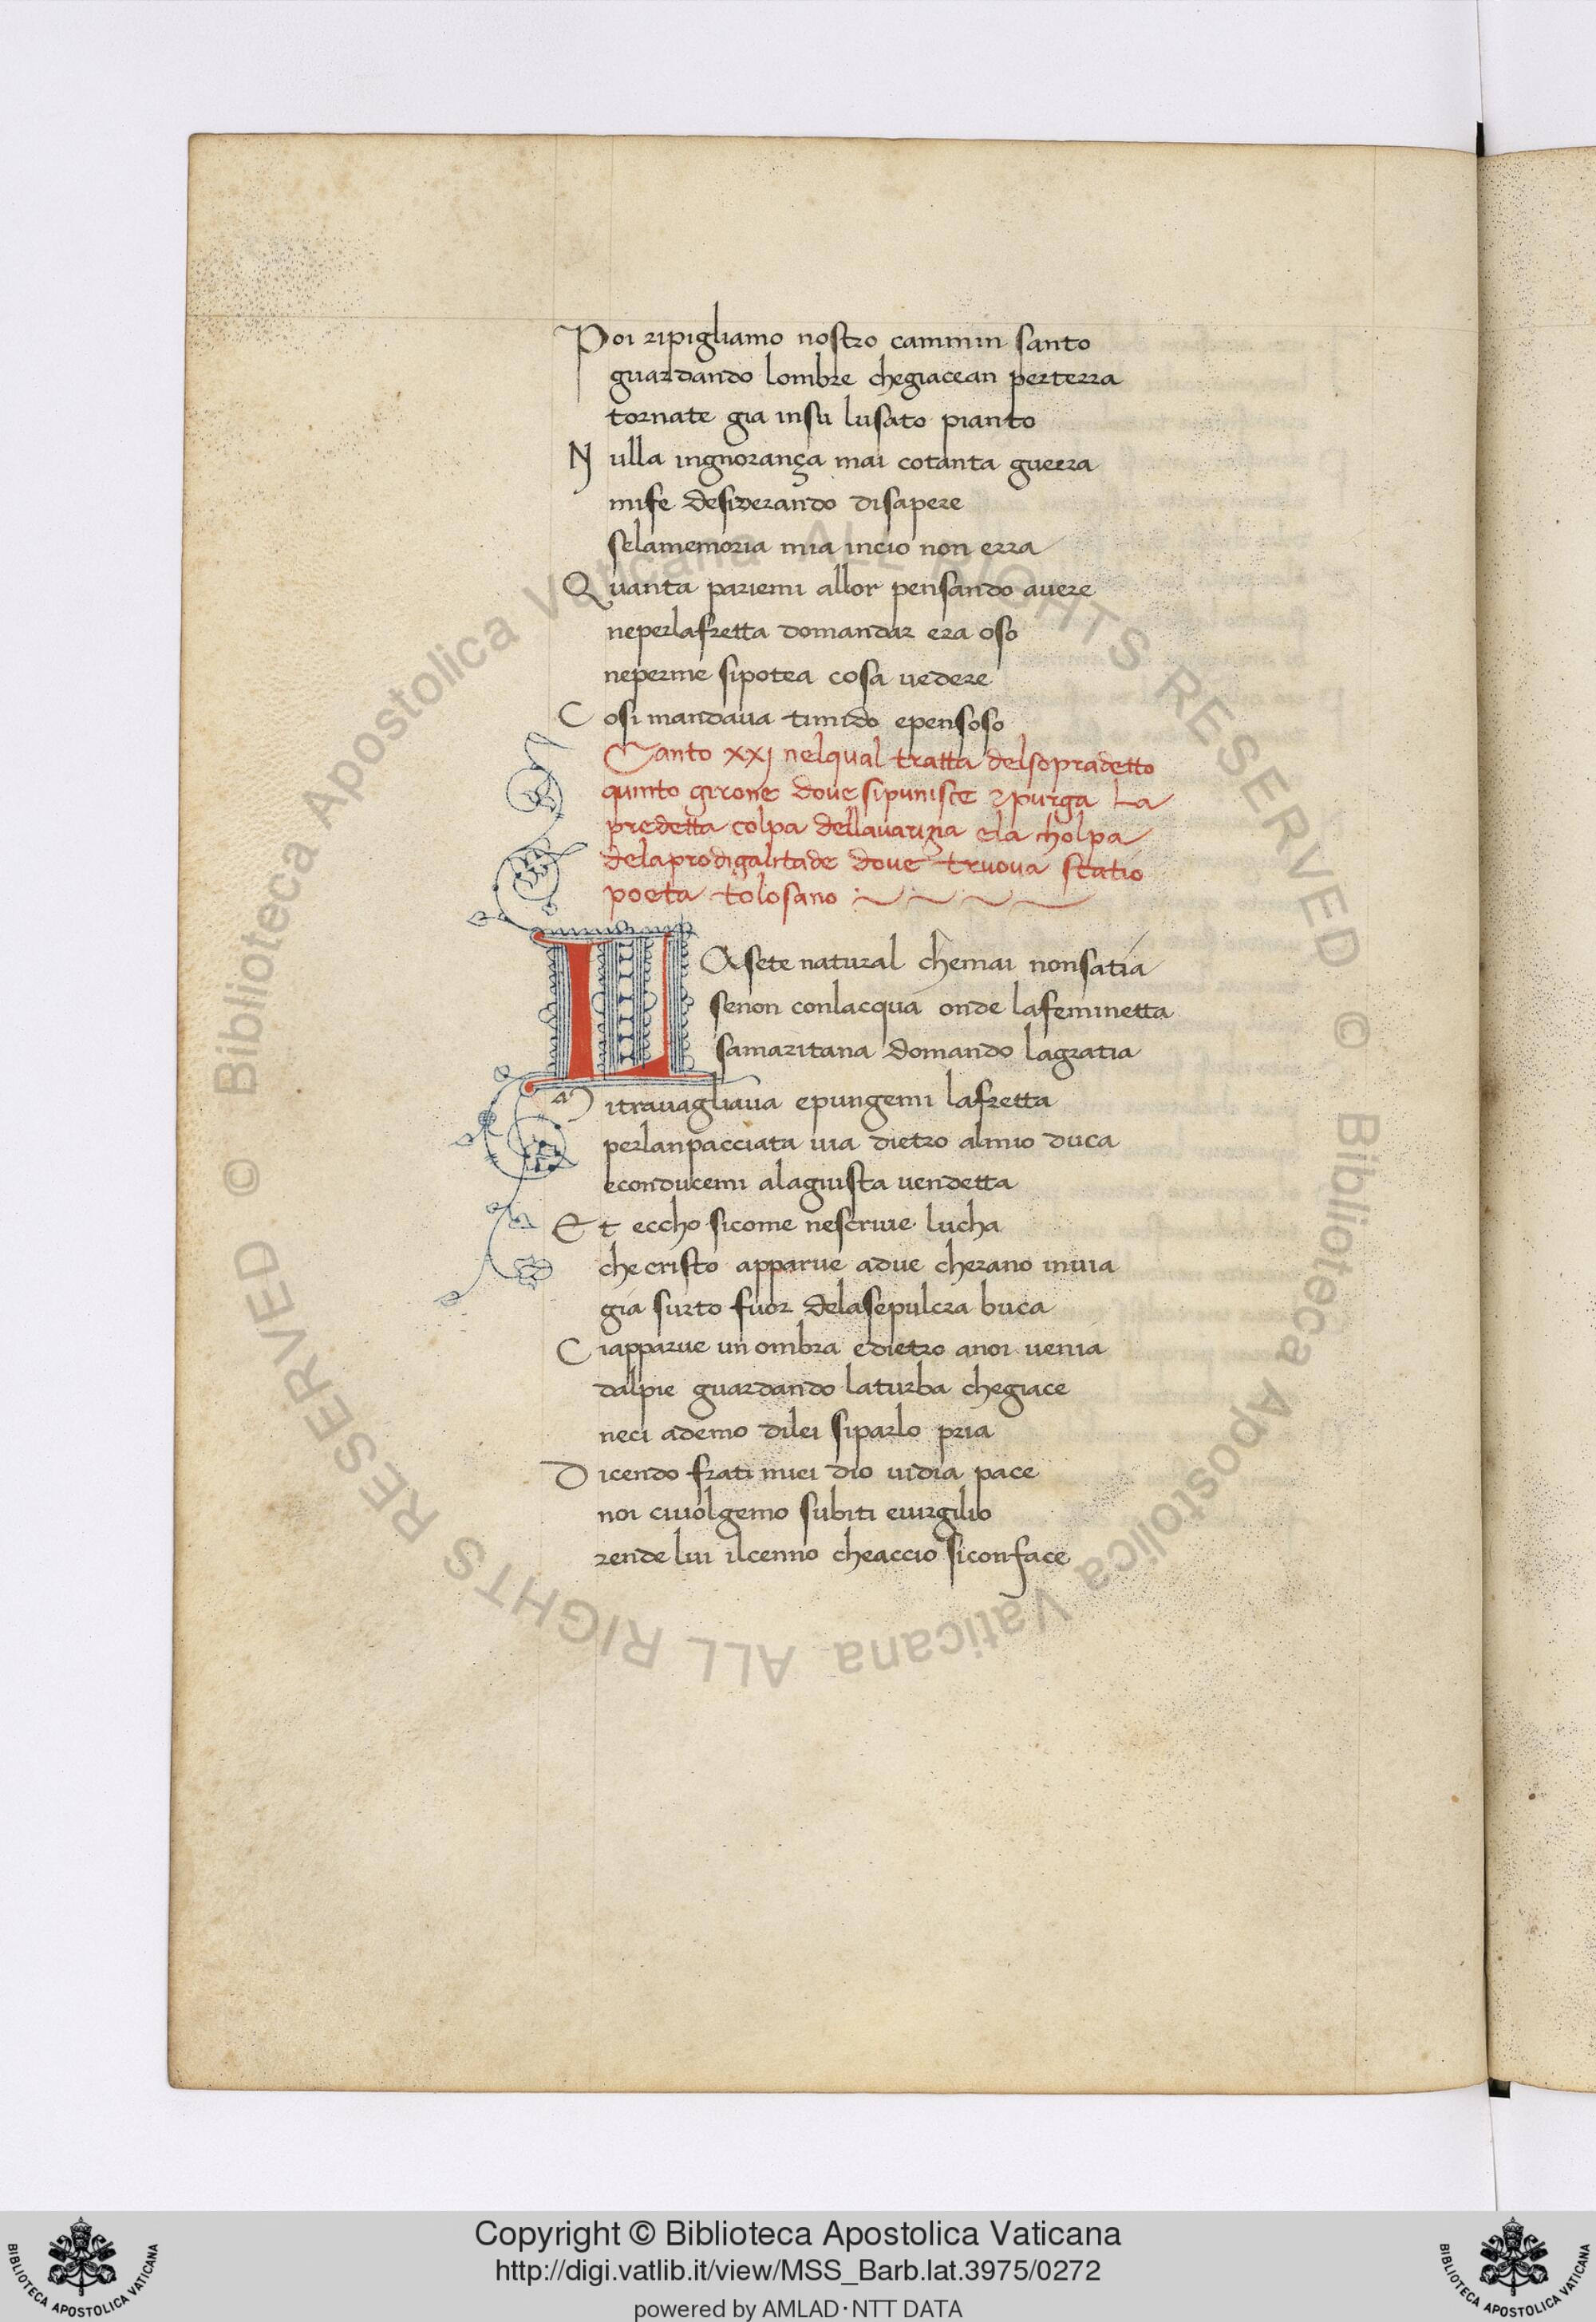 Poi ripigliamo nostro cammin santo
guardando lombre chegiacean perterra
tornate gia insu lusato pianto
Nulla ingnorança mai cotanta guerra
mife desiderando disapere
selamemoria mia incio non erra
Quanta pariemi allor pensando avere
neperlafretta domandar era oso
neperme sipotea cosa vedere
Cosi mandava timido epensoso
Canto xxj nelqual tratta delsopradetto
quinto girone dove sipunisce & purga La
predetta colpa dellavarizia ela cholpa
delaprodigalitade dove truova statio
poeta tolosano
LA sete natural chemai nonsatia
senon conlacqua onde lafeminetta
samaritana domando lagratia
Mitravagliava epungemi lafretta
perlanpacciata via dietro almio duca
econducemi alagiusta vendetta
Et eccho sicome nescrive lucha
checristo apparve adue cherano invia
gia surto fuor delasepulcra buca
Ciapparve un ombra edietro anoi venia
dalpie guardando laturba chegiace
neci ademo dilei siparlo pria
Dicendo frati miei dio vidia pace
noi civolgemo subiti evirgilio
rende lui ilcenno cheaccio siconface
© Biblioteca Apostolica Vaticana ALL RIGHTS RESERVED
© Biblioteca Apostolica Vaticana ALL RIGHTS RESERVED
BIBLIOTECA APOSTOLICA VATICANA
Copyright © Biblioteca Apostolica Vaticana
http://digi.vatlib.it/view/MSS_Barb.lat.3975/0272
powered by AMLAD·NTT DATA
BIBLIOTECA APOSTOLICA VATICANA